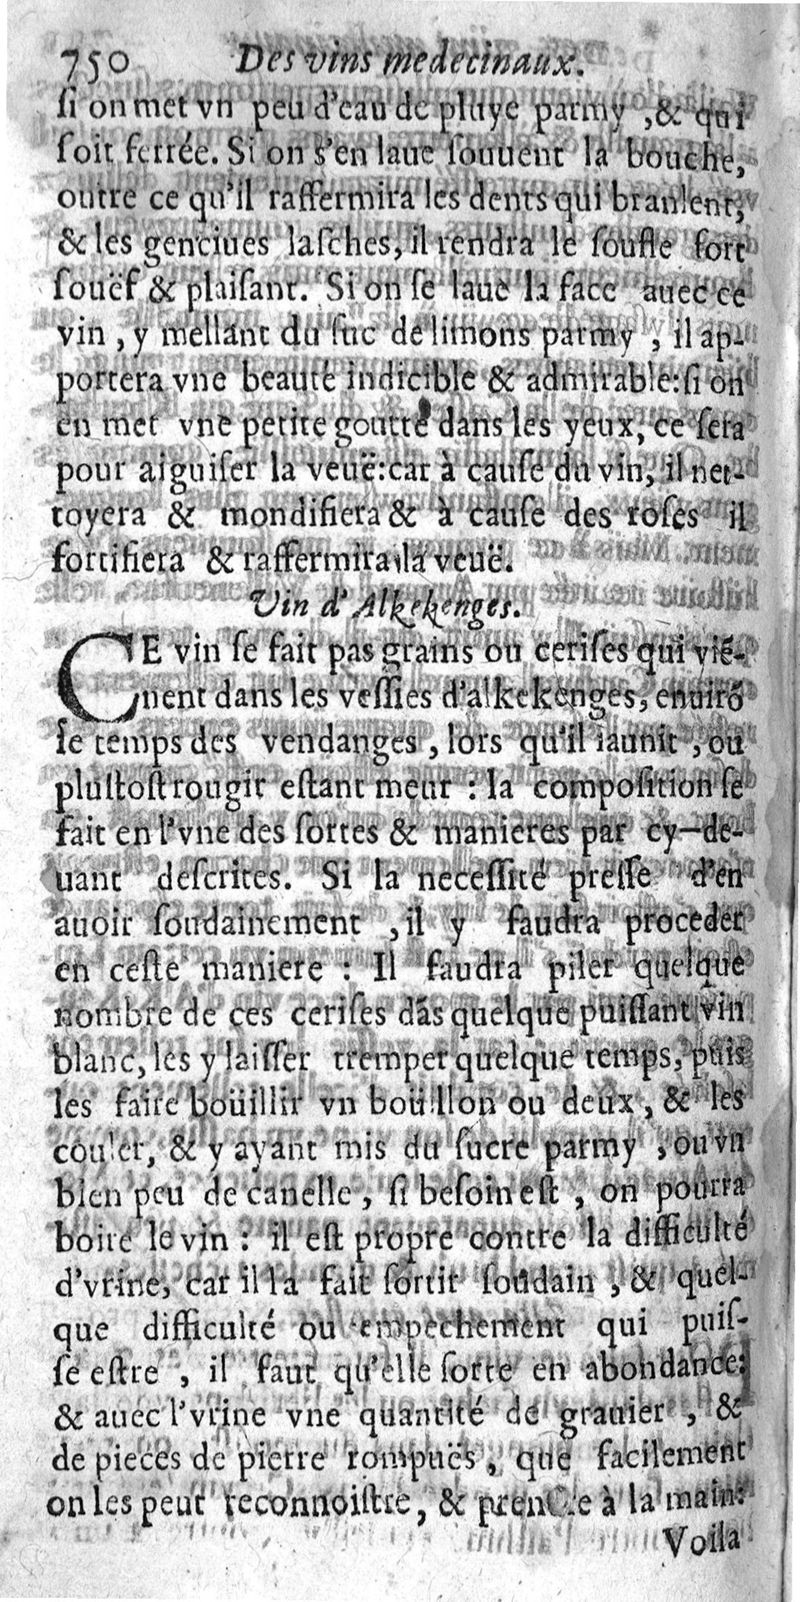 750 Des vins medecinaux.
ſi on met vn peu d'eau de pluye parmy ,& qui
ſoit ferrée. Si on s'en laue ſouuent la bouche,
outre ce qu'il raffermira les dents qui branlent,
& les genciues laſches, il rendra le ſoufle fort
ſouëf & plaiſant. Si on ſe laue la face auec ce
vin , y meſlant du ſuc de limons parmy , il ap-
portera vne beauté indicible & admirable:ſi on
en met vne petite goutte dans les yeux, ce ſera
pour aiguiſer la veuë:car à cauſe du vin, il net-
toyera & mondifiera & à cauſe des roſes il
fortifiera & raffermira la veuë.
Vin d'Alkekenges.
CE vin ſe fait pas grains ou ceriſes qui viē-
nent dans les veſſies d'alkekenges, enuirō
le temps des vendanges , lors qu'il iaunit , ou
pluſtoſt rougit eſtant meur : la compoſition ſe
fait en l'vne des ſortes & manieres par cy-de-
uant deſcrites. Si la neceſſité preſſe d'en
auoir ſoudainement , il y faudra proceder
en ceſte maniere : Il faudra piler quelque
nombre de ces ceriſes dās quelque puiſſant vin
blanc, les y laiſſer tremper quelque temps, puis
les faire boüillir vn boüillon ou deux , & les
couler, & y ayant mis du ſucre parmy , ou vn
bien peu de canelle , ſi beſoin eſt , on pourra
boire le vin : il eſt propre contre la difficulté
d'vrine, car il la fait ſortir ſoudain , & quel-
que difficulté ou empechement qui puiſ-
ſe eſtre , il faut qu'elle ſorte en abondance:
& auec l'vrine vne quantité de grauier , &
de pieces de pierre rompuës, que facilement
on les peut reconnoiſtre, & prendre à la main:
Voila